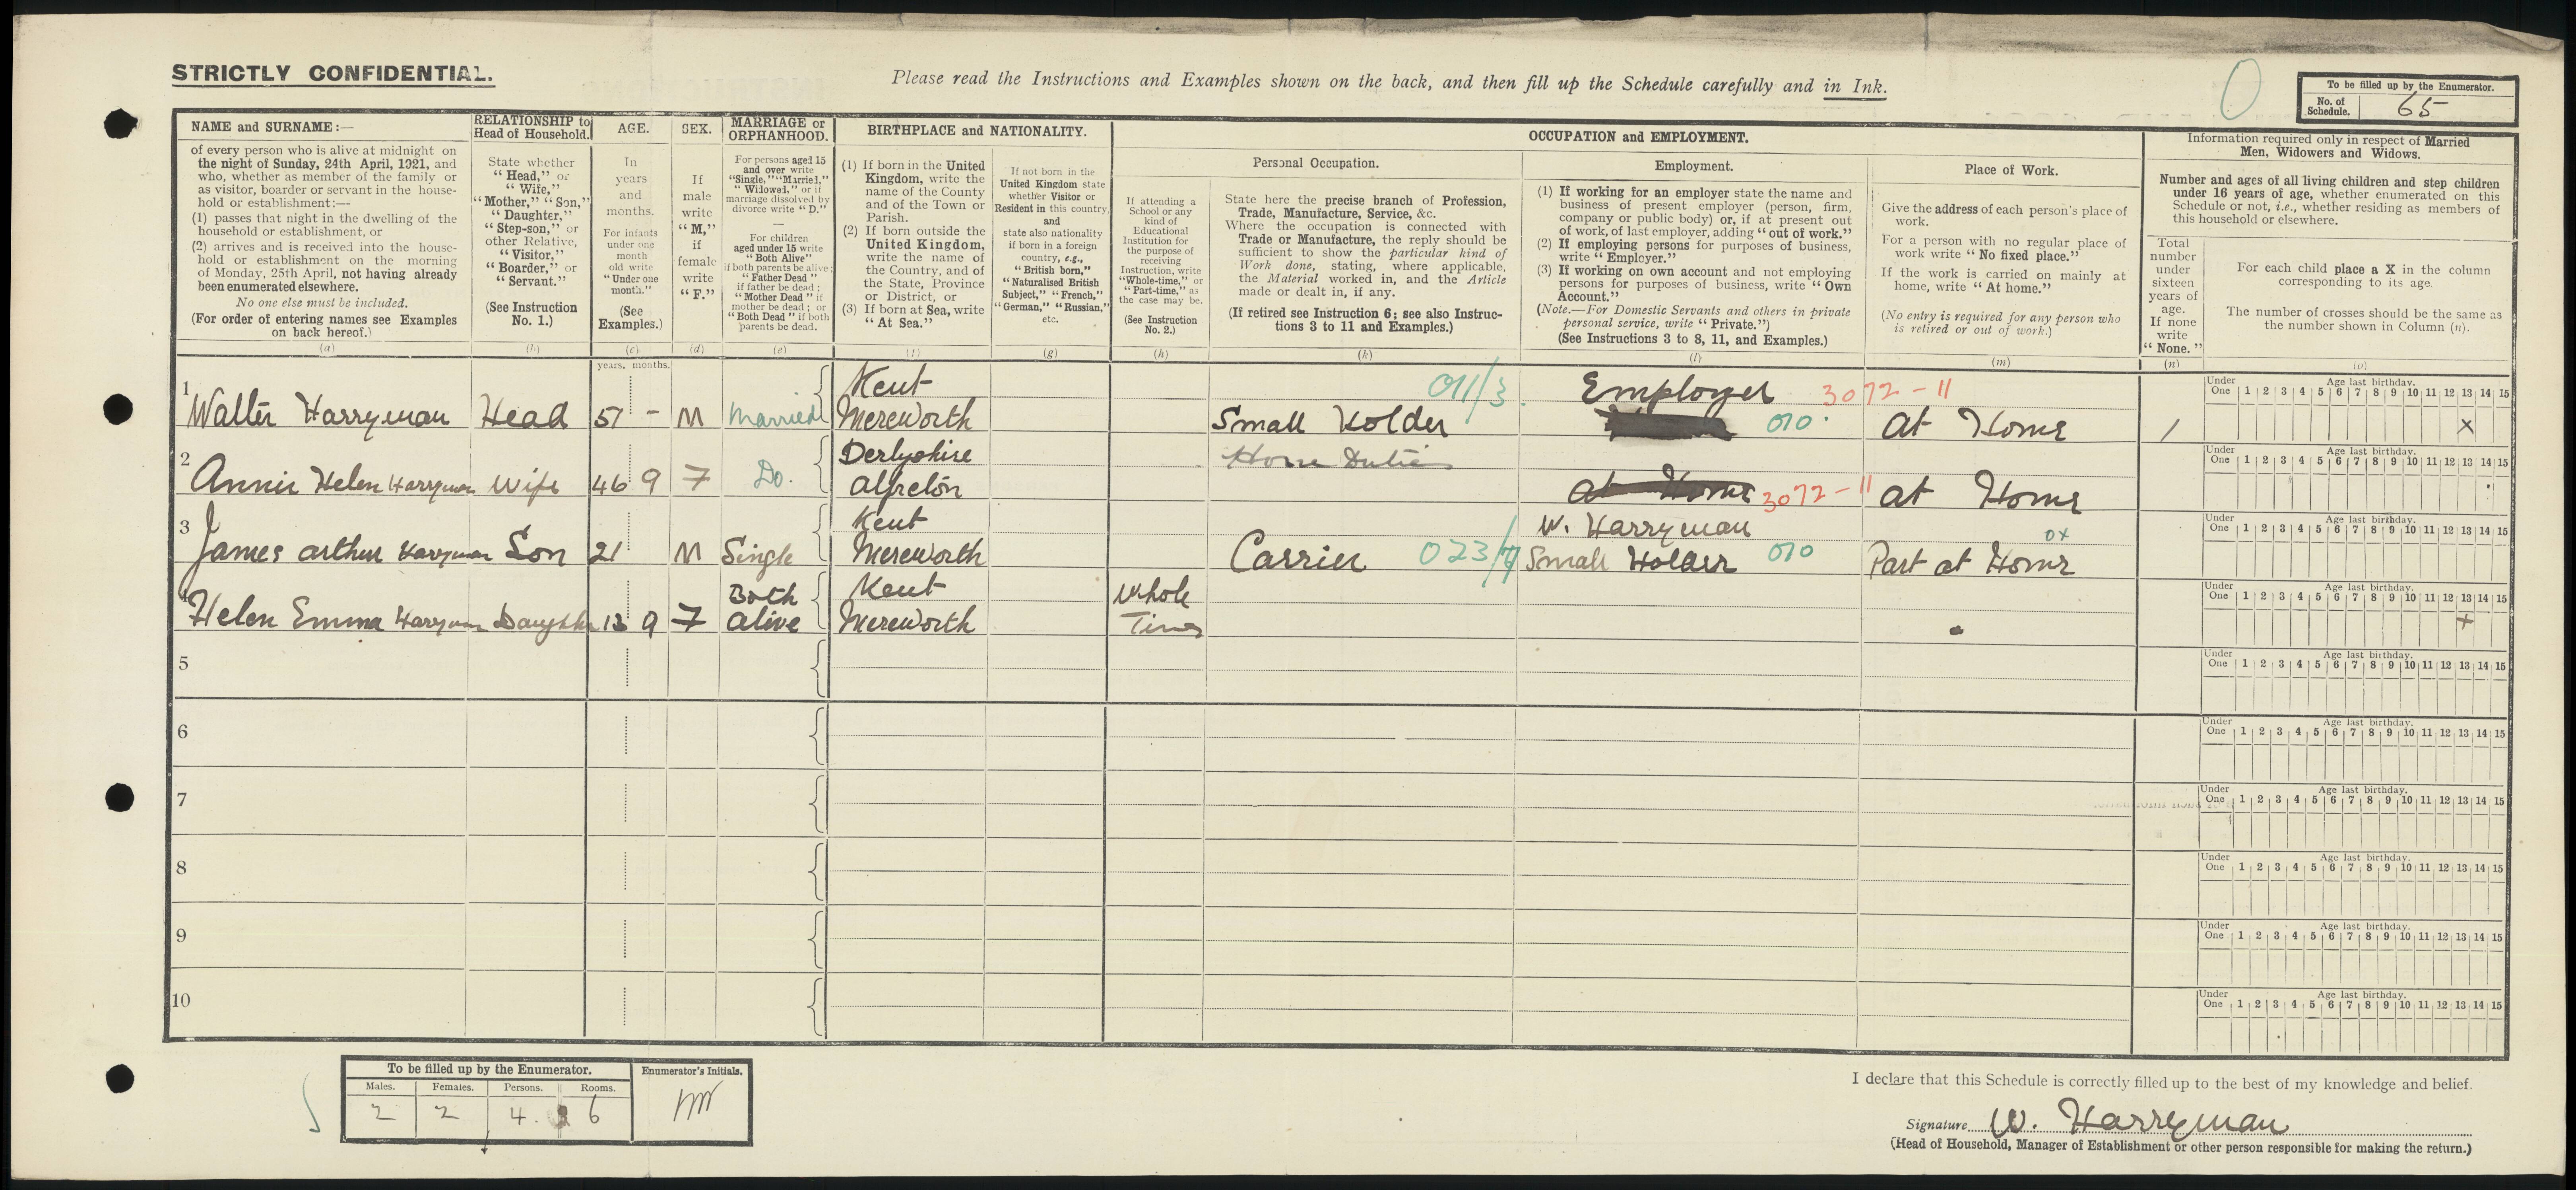 STRICTLY CONFIDENTIAL.
Please read the Instructions and Examples shown on the back, and then fill up the Schedule carefully and in Ink.
To be filled up by the Enumerator.
No. of Schedule. 65
NAME and SURNAME:—
of every person who is alive at midnight on
the night of Sunday, 24th April, 1921, and
who, whether as member of the family or
as visitor, boarder or servant in the house-
hold or establishment:—
(1) passes that night in the dwelling of the
household or establishment, or
(2) arrives and is received into the house-
hold or establishment on the morning
of Monday, 25th April, not having already
been enumerated elsewhere.
No one else must be included.
(For order of entering names see Examples
on back hereof.)
(a)
RELATIONSHIP to
Head of Household.
State whether
"Head," or
"Wife,"
"Mother," "Son,"
"Daughter,"
"Step-son," or
other Relative,
"Visitor,"
"Boarder," or
"Servant."
(See Instruction
No. 1.)
(b)
AGE.
In
years
and
months.
For infants
under one
month
old write
"Under one
month."
(See
Examples.)
(c)
SEX.
If
male
write
"M,"
if
female
write
"F."
(d)
MARRIAGE or
ORPHANHOOD.
For persons aged 15
and over write
"Single," "Married,"
"Widowed," or if
marriage dissolved by
divorce write "D."
For children
aged under 15 write
"Both Alive"
if both parents be alive;
"Father Dead"
if father be dead;
"Mother Dead" if
mother be dead; or
"Both Dead" if both
parents be dead.
(e)
BIRTHPLACE and NATIONALITY.
(1) If born in the United
Kingdom, write the
name of the County
and of the Town or
Parish.
(2) If born outside the
United Kingdom,
write the name of
the Country, and of
the State, Province
or District, or
(3) If born at Sea, write
"At Sea."
(f)
If not born in the
United Kingdom state
whether Visitor or
Resident in this country,
and
state also nationality
if born in a foreign
country, e.g.,
"British born,"
"Naturalised British
Subject," "French,"
"German," "Russian,"
etc.
(g)
OCCUPATION and EMPLOYMENT.
If attending a
School or any
kind of
Educational
Institution for
the purpose of
receiving
Instruction, write
"Whole-time," or
"Part-time," as
the case may be.
(See Instruction
No. 2.)
(h)
Personal Occupation.
State here the precise branch of Profession,
Trade, Manufacture, Service, &c.
Where the occupation is connected with
Trade or Manufacture, the reply should be
sufficient to show the particular kind of
Work done, stating, where applicable,
the Material worked in, and the Article
made or dealt in, if any.
(If retired see Instruction 6; see also Instruc-
tions 3 to 11 and Examples.)
(k)
Employment.
(1) If working for an employer state the name and
business of present employer (person, firm,
company or public body) or, if at present out
of work, of last employer, adding "out of work."
(2) If employing persons for purposes of business,
write "Employer."
(3) If working on own account and not employing
persons for purposes of business, write "Own
Account."
(Note.—For Domestic Servants and others in private
personal service, write "Private.")
(See Instructions 3 to 8, 11, and Examples.)
(l)
Place of Work.
Give the address of each person's place of
work.
For a person with no regular place of
work write "No fixed place."
If the work is carried on mainly at
home, write "At home."
(No entry is required for any person who
is retired or out of work.)
(m)
Information required only in respect of Married
Men, Widowers and Widows.
Number and ages of all living children and step children
under 16 years of age, whether enumerated on this
Schedule or not, i.e., whether residing as members of
this household or elsewhere.
Total
number
under
sixteen
years of
age.
If none
write
"None."
(n)
For each child place a X in the column
corresponding to its age.
The number of crosses should be the same as
the number shown in Column (n).
(o)
years. months.
Under One Age last birthday. 1 2 3 4 5 6 7 8 9 10 11 12 13 14 15
1 Walter Harryman Head 51 - M Married Kent Mereworth 011/3 Small Holder Employer 3072-11 010 At Home 1 X
Under One Age last birthday. 1 2 3 4 5 6 7 8 9 10 11 12 13 14 15
2 Annie Helen Harryman Wife 46 9 F Do. Derbyshire Alfreton Home Duties At Home 3072-11 At Home
Under One Age last birthday. 1 2 3 4 5 6 7 8 9 10 11 12 13 14 15
3 James Arthur Harryman Son 21 M Single Kent Mereworth Carrier 023/ W. Harryman Small Holder 010 Part at Home 0x
Under One Age last birthday. 1 2 3 4 5 6 7 8 9 10 11 12 13 14 15
4 Helen Emma Harryman Daughter 13 9 F Both Alive Kent Mereworth Whole Time +
5 Under One Age last birthday. 1 2 3 4 5 6 7 8 9 10 11 12 13 14 15
6 Under One Age last birthday. 1 2 3 4 5 6 7 8 9 10 11 12 13 14 15
7 Under One Age last birthday. 1 2 3 4 5 6 7 8 9 10 11 12 13 14 15
8 Under One Age last birthday. 1 2 3 4 5 6 7 8 9 10 11 12 13 14 15
9 Under One Age last birthday. 1 2 3 4 5 6 7 8 9 10 11 12 13 14 15
10 Under One Age last birthday. 1 2 3 4 5 6 7 8 9 10 11 12 13 14 15
To be filled up by the Enumerator. Enumerator's Initials.
Males. Females. Persons. Rooms.
2 2 4. 6
I declare that this Schedule is correctly filled up to the best of my knowledge and belief.
Signature W. Harryman
(Head of Household, Manager of Establishment or other person responsible for making the return.)